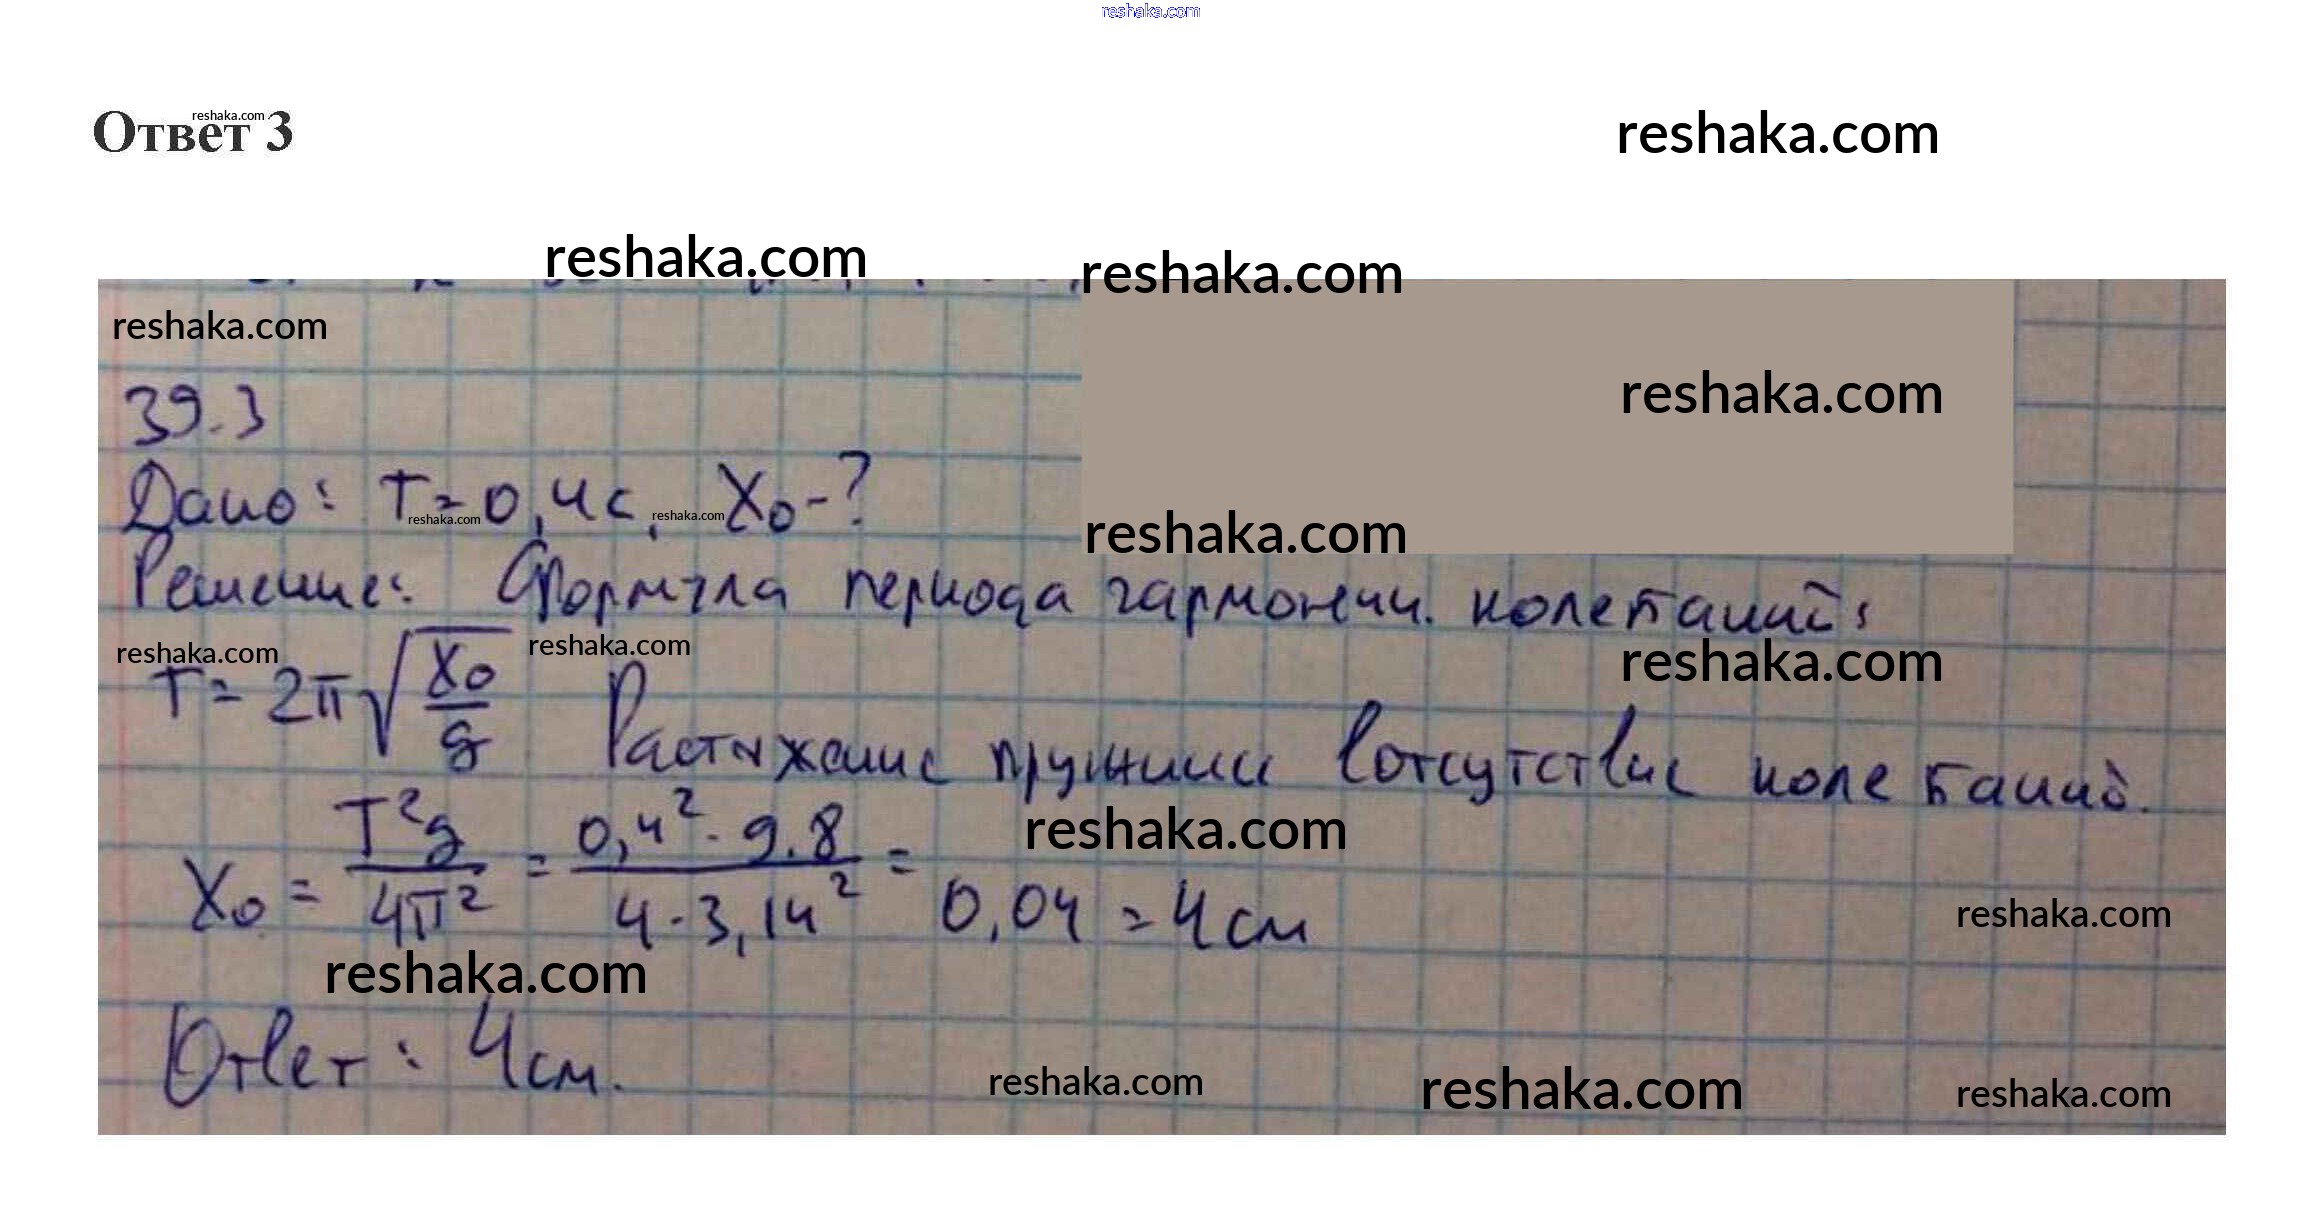 reshaka.com
Ответ 3
reshaka.com
reshaka.com
reshaka.com
reshaka.com
reshaka.com
reshaka.com
39.3
Дано: T=0,4с, X₀-?
reshaka.com
reshaka.com
reshaka.com
Решение: Формула периода гармонич. колебаний:
reshaka.com
reshaka.com
reshaka.com
T=2π√(X₀/g) Растяжение пружины в отсутствие колебаний.
reshaka.com
X₀ = T²g/4π² = 0,4²·9.8/4·3,14² = 0,04 = 4см
reshaka.com
reshaka.com
Ответ: 4см.
reshaka.com
reshaka.com
reshaka.com